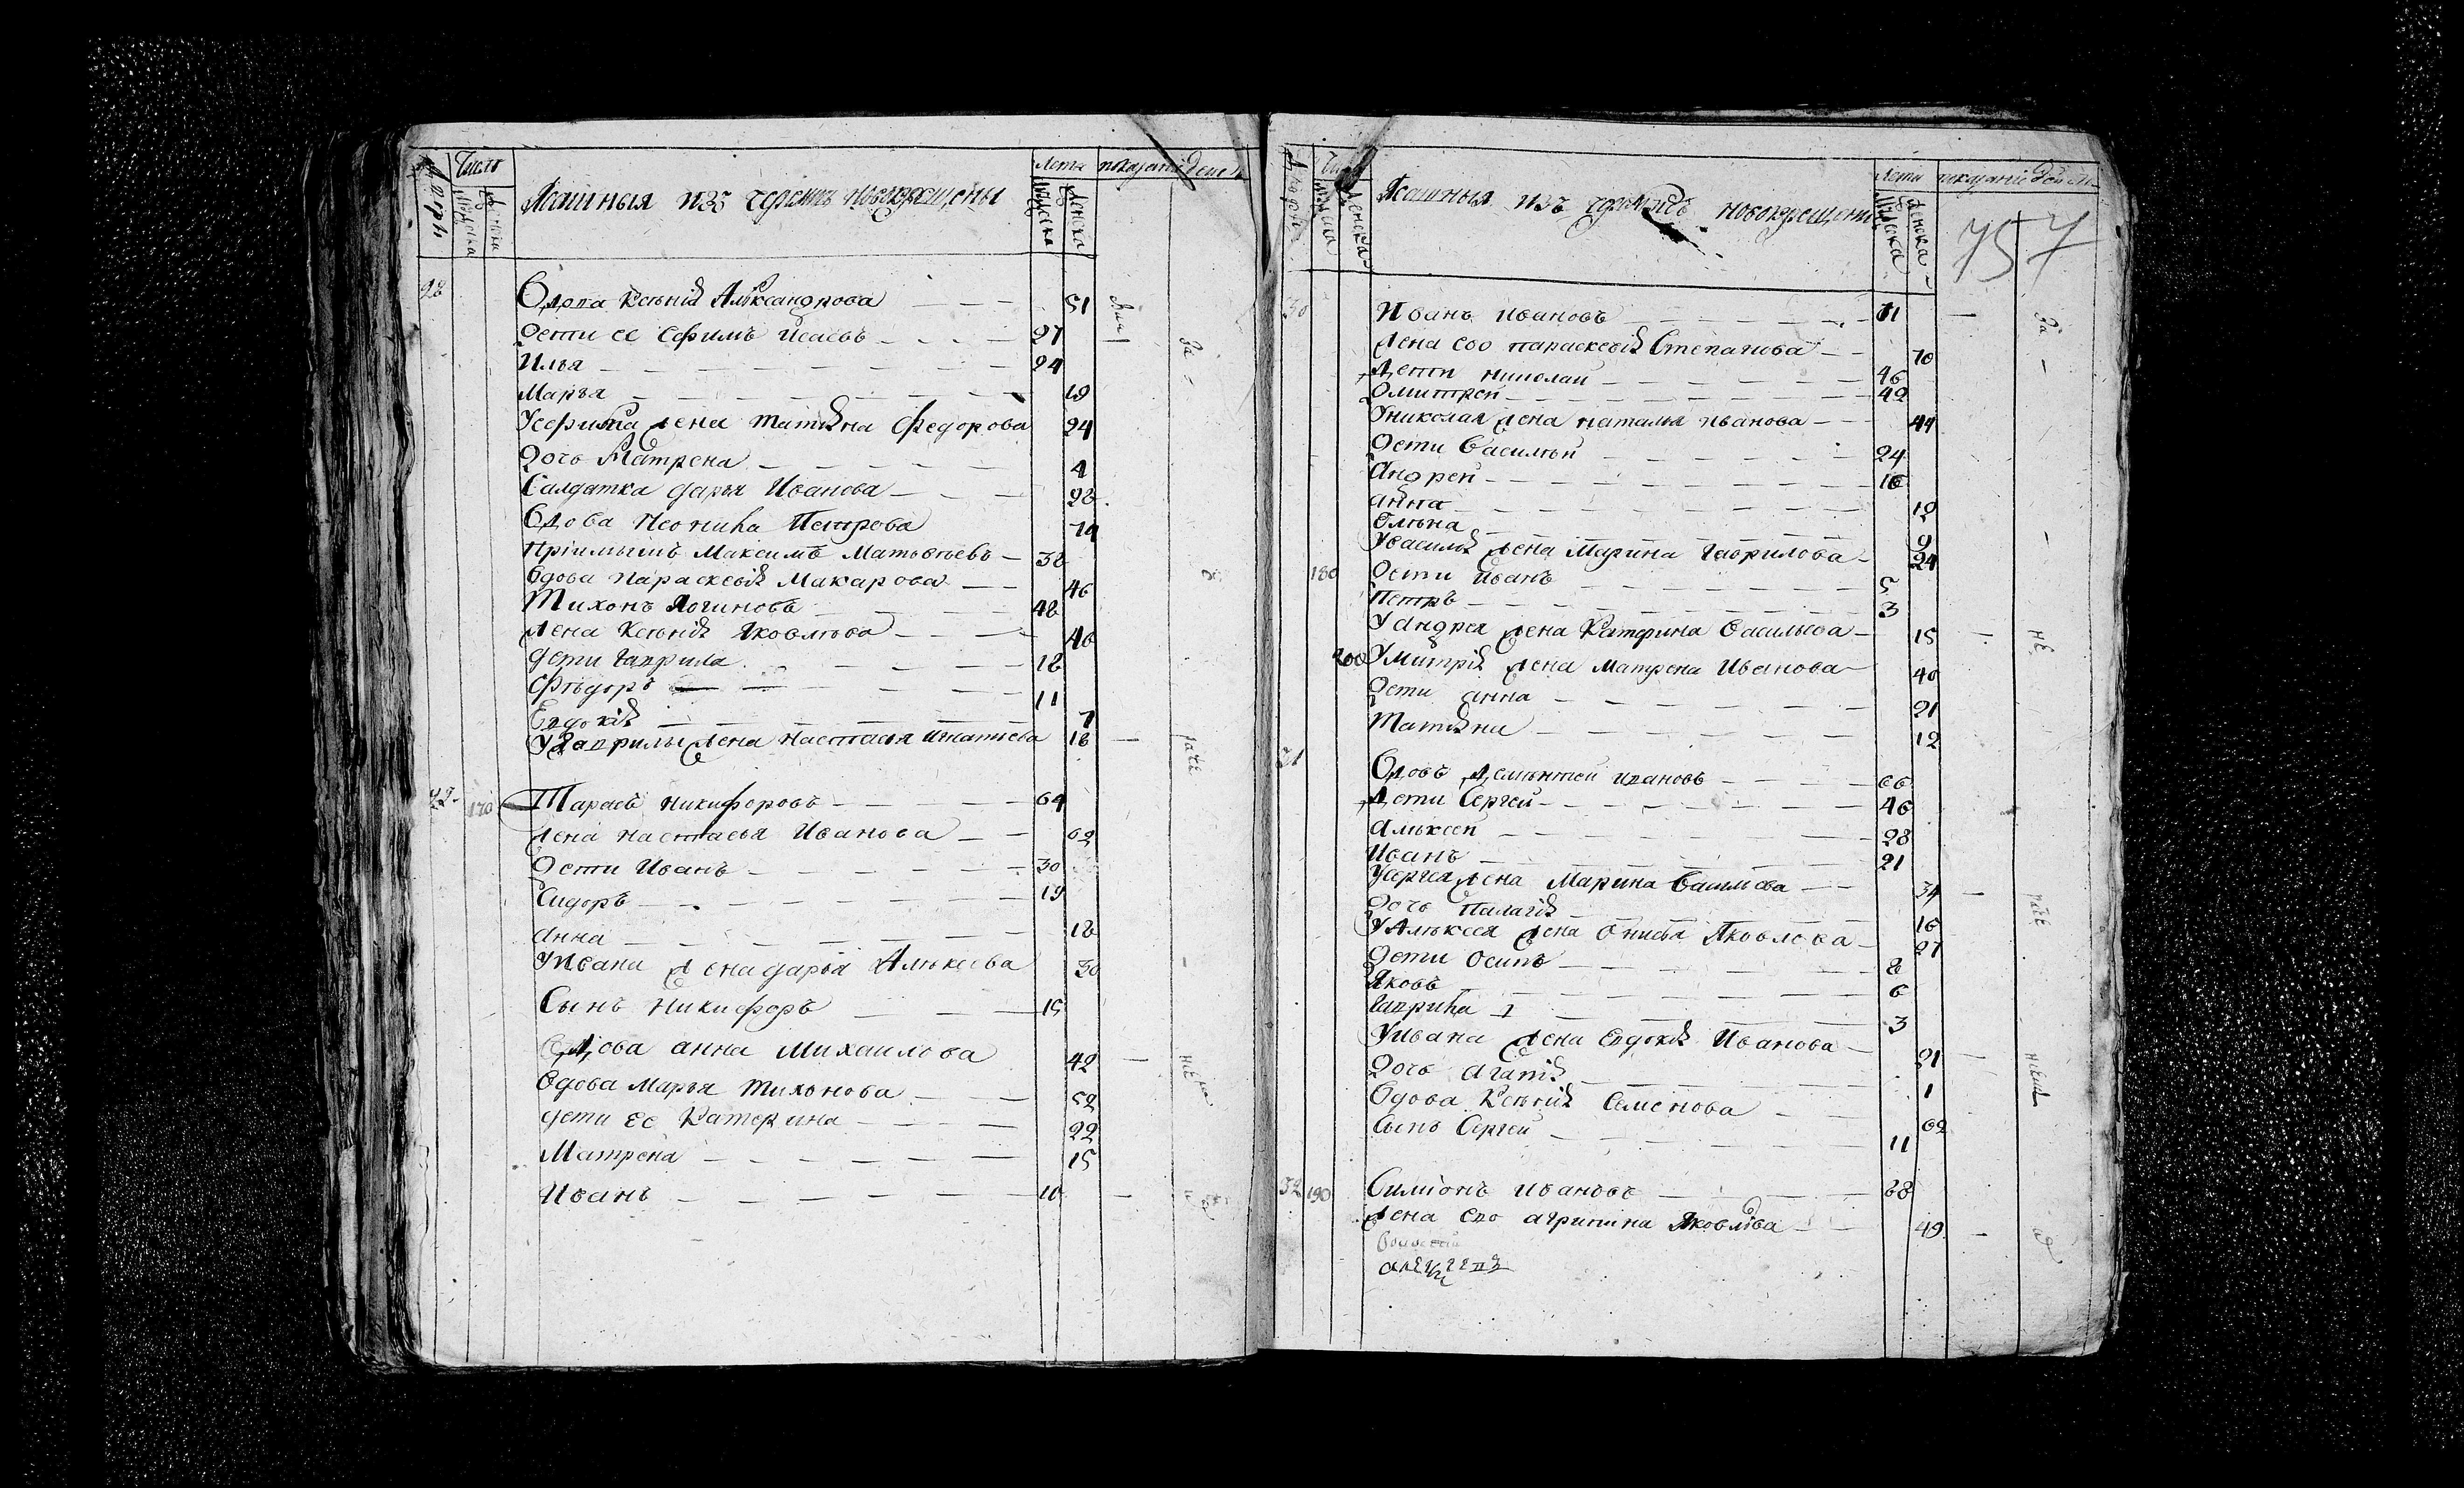 Число
Лета показание
Ясашныя изъ черемисъ новокрещены
Двора
Мужска
Женска
Мужска
Женска
28
Вдова Ксенія Александрова 51
Дети ее Ефимъ Исаевъ 27
Илья 24
Марья 19
У Ефима жена Татьяна Федорова 24
Дочь Матрена 4
Салдатка Дарья Иванова 28
Вдова Неонила Петрова 74
Пріимышъ Максимъ Матвѣевъ 38
Вдова Параскевія Макарова 46
Тихонъ Логиновъ 48
Жена Ксенія Яковлева 46
Дети Гаврила 18
Фѣдоръ 11
Евдокія 7
У Гаврилы жена Настасья Игнатьева 18
29 170 Тарасъ Никифоровъ 64
Жена Настасья Иванова 62
Дети Иванъ 30
Сидоръ 19
Анна 18
У Ивана жена Дарья Алѣксеева 30
Сынъ Никифоръ 15
Вдова Анна Михаилова 42
Вдова Марья Тихонова 52
Дети ее Катерина 22
Матрена 15
Иванъ 10
Лета показание
Ясашныя изъ черемисъ новокрещены
Женска
Мужска
Женска
757
30 Иванъ Ивановъ 71
Жена ево Параскевія Степанова 70
Дети Николай 46
Дмитрей 42
У Николая жена Наталья Иванова 44
Дети Василѣй 24
Андрей 16
Анна 12
Олѣна 9
У Василья жена Марина Гаврилова 24
180 Дети Иванъ 5
Петръ 3
У Андрея жена Катерина Васильева 15
200 У Митрія жена Матрена Иванова 40
Дети Анна 21
Татьяна 12
31
Вдовъ Дементей Ивановъ 66
Дети Сергей 46
Алѣксей 28
Иванъ 21
У Сергея жена Марина Васильева 34
Дочь Палагія 16
У Алѣксея жена Онисья Яковлева 27
Дети Осипъ 8
Яковъ 6
Гаврила 3
У Ивана жена Евдокія Иванова 21
Дочь Агапія 1
Вдова Ксенія Семенова 62
Сынъ Сергей 11
32 190 Симіонъ Ивановъ 68
Жена ево Агрипина Яковлева 49